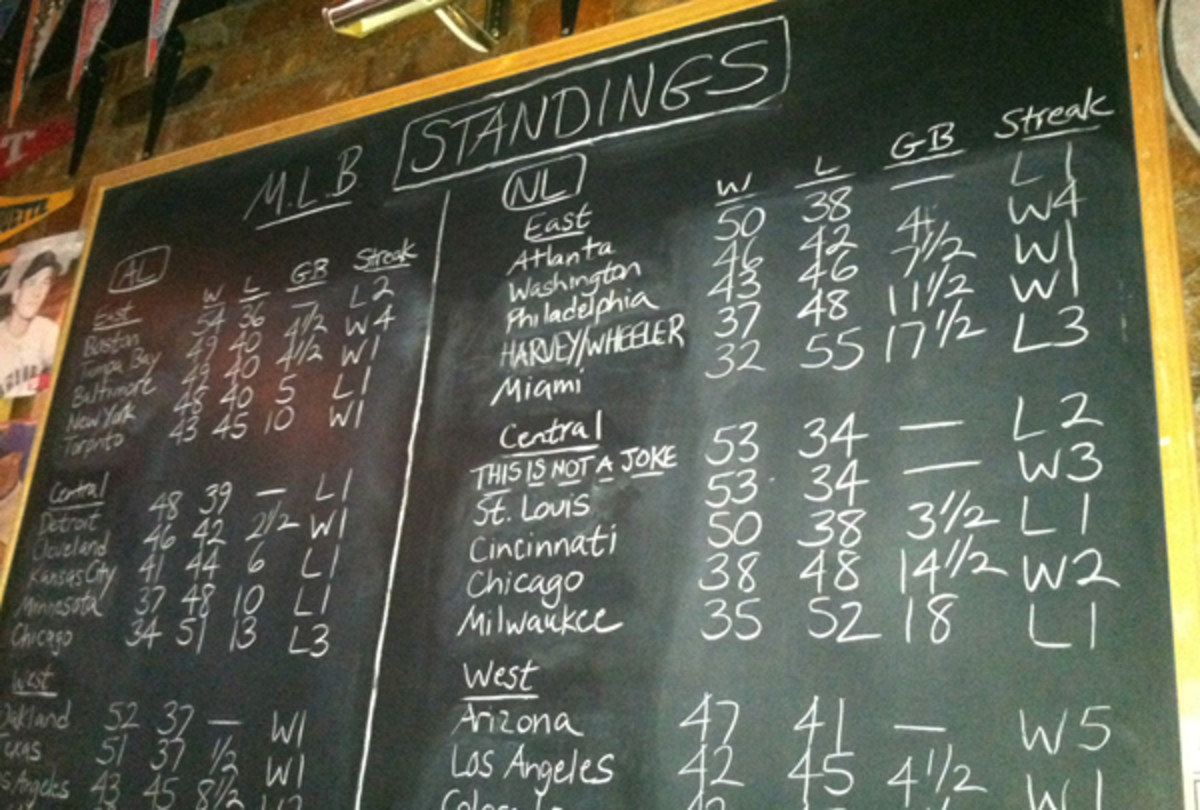 T
STANDINGS
M.L.B
AL
W L GB Streak
East 54 36 — L2
Boston 49 40 4 1/2 W4
Tampa Bay 49 40 4 1/2 W1
Baltimore 48 40 5 L1
New York 43 45 10 W1
Toronto
Central 48 39 — L1
Detroit 46 42 2 1/2 W1
Cleveland 41 44 6 L1
Kansas City 37 48 10 L1
Minnesota 34 51 13 L3
Chicago
West
Oakland 52 37 — W1
Texas 51 37 1/2 W1
s Angeles 43 45 8 1/2
NL
W L GB Streak
East 50 38 — L1
Atlanta 46 42 4 W4
Washington 43 46 7 1/2 W1
Philadelphia 37 48 11 1/2 W1
HARVEY/WHEELER 32 55 17 1/2 L3
Miami
Central
THIS IS NOT A JOKE 53 34 — L2
St. Louis 53 34 — W3
Cincinnati 50 38 3 1/2 L1
Chicago 38 48 14 1/2 W2
Milwaukee 35 52 18 L1
West
Arizona 47 41 — W5
Los Angeles 42 45 4 1/2 W1